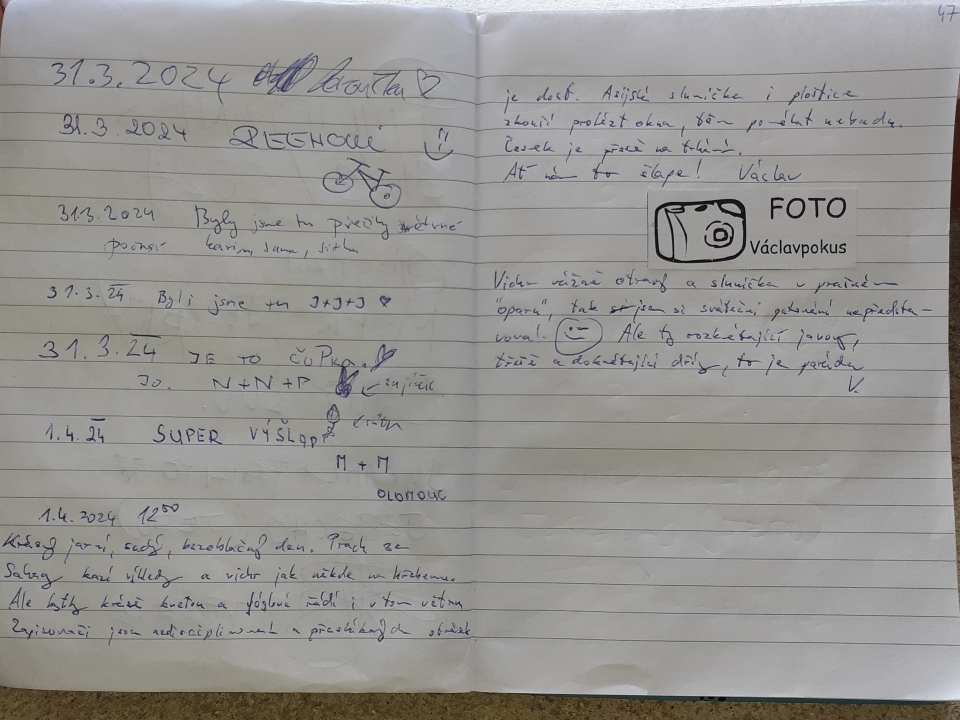 47
31.3.2024
31.3.2024
31.3.2024 Byly jsme tu
31.3.24 Byli jsme tu J+J+J
31.3.24 JE TO ČUPKA.
JO. N+N+P zajíček
1.4.24 SUPER VÝŠLAP
M + M
OLOMOUC
1.4.2024 12⁵⁰
Krásný jarní, suchý, bezoblačný den. Prach ze
Sahary kazí výhledy a vichr jak někde na hřebenu.
Ale kytky krásně kvetou a řádí i v tom větru
Zapisovači jsou nedisciplinovaní a přeskákaných stránek
je dost. Asijská sluníčka i ploštice
zkouší prolézt okna, těm pomáhat nebudu.
Česnek je právě na trhání.
Ať nám to šlape! Václav
FOTO
Václavpokus
Vichr vážně otravný a sluníčka v prašném
"oparu", tak jsem si sváteční putování nepředsta-
voval! Ale ty rozkvétající javory,
třešně a dokvétající dříny, to je paráda
V.